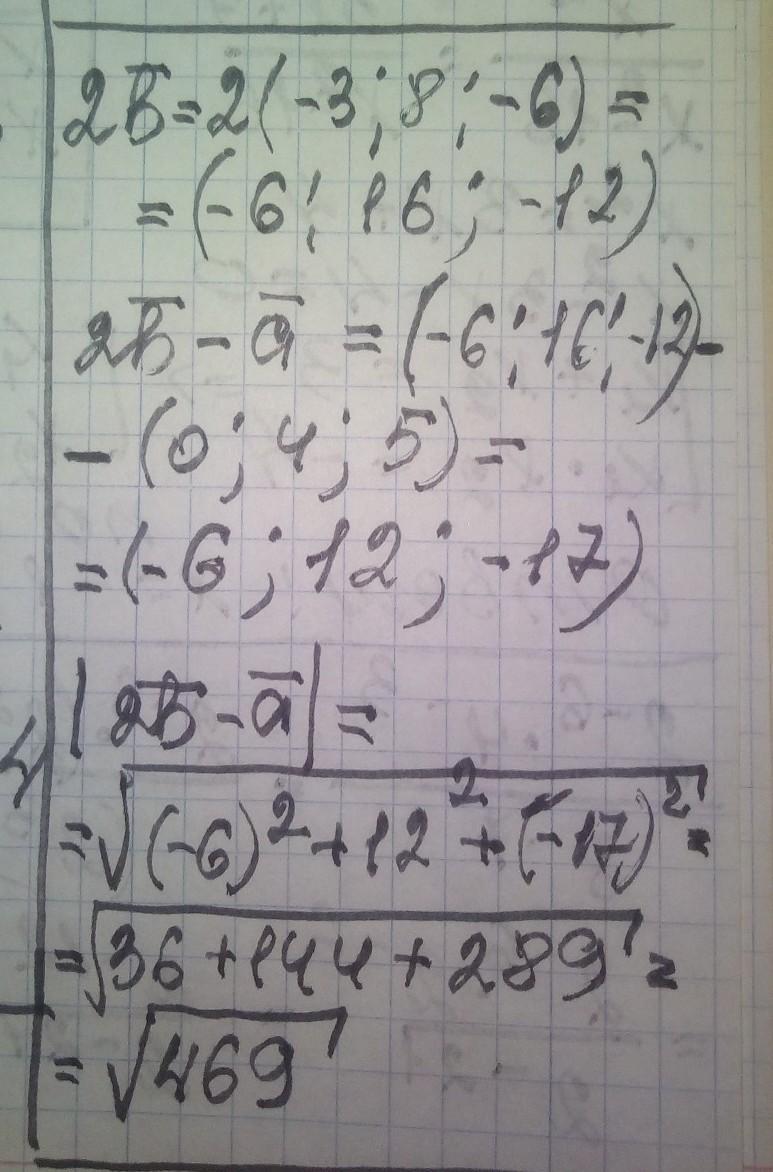 2b̅ = 2(-3; 8; -6) =
= (-6; 16; -12)
2b̅ - a̅ = (-6; 16; -12) -
- (0; 4; 5) =
= (-6; 12; -17)
|2b̅ - a̅| =
= √((-6)² + 12² + (-17)²) =
= √(36 + 144 + 289) =
= √469